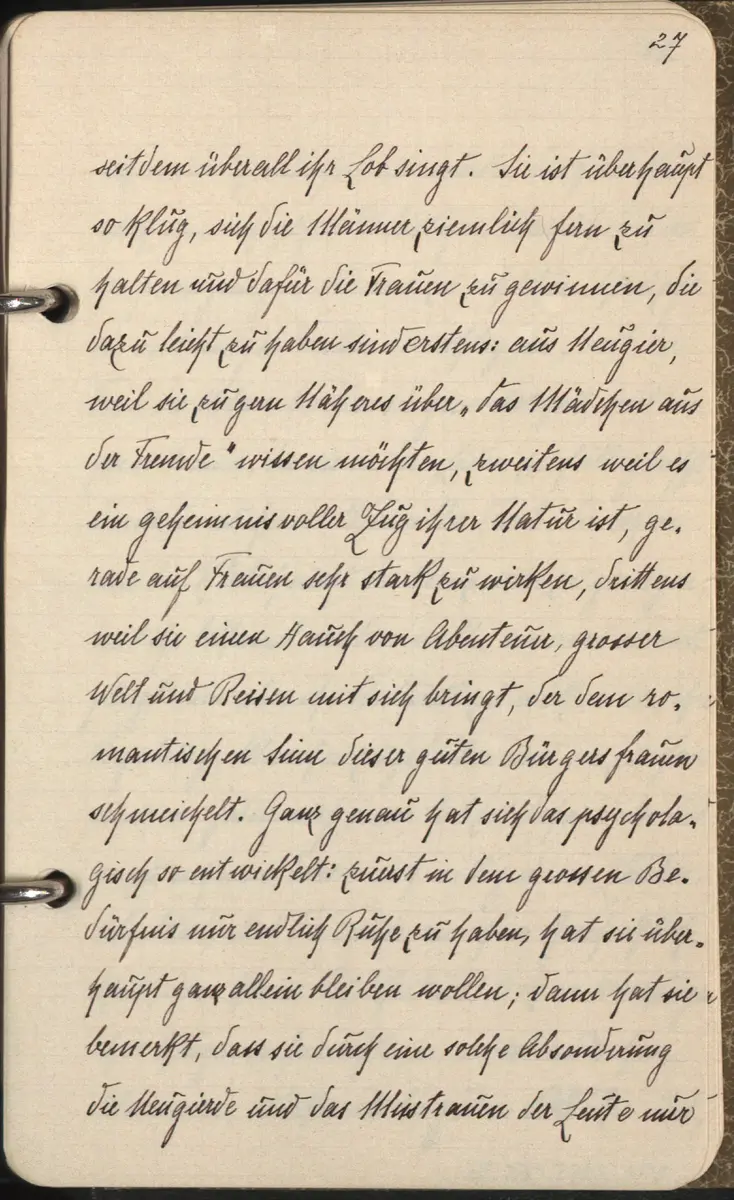 27
seitdem überall ihr Lob singt. Sie ist überhaupt
so klug, sich die Männer ziemlich fern zu
halten und dafür die Frauen zu gewinnen, die
dazu leicht zu haben sind erstens: aus Neugier,
weil sie zu gern Näheres über „das Mädchen aus
der Fremde" wissen möchten, zweitens weil es
ein geheimnisvoller Zug ihrer Natur ist, ge-
rade auf Frauen sehr stark zu wirken, drittens
weil sie einen Hauch von Abenteuer, grosser
Welt und Reisen mit sich bringt, der dem ro-
mantischen Sinn dieser guten Bürgersfrauen
schmeichelt. Ganz genau hat sich das psycholo-
gisch so entwickelt: zuerst in dem grossen Be-
dürfnis nur endlich Ruhe zu haben, hat sie über-
haupt ganz allein bleiben wollen; dann hat sie
bemerkt, dass sie durch eine solche Absonderung
die Neugierde und das Misstrauen der Leute nur